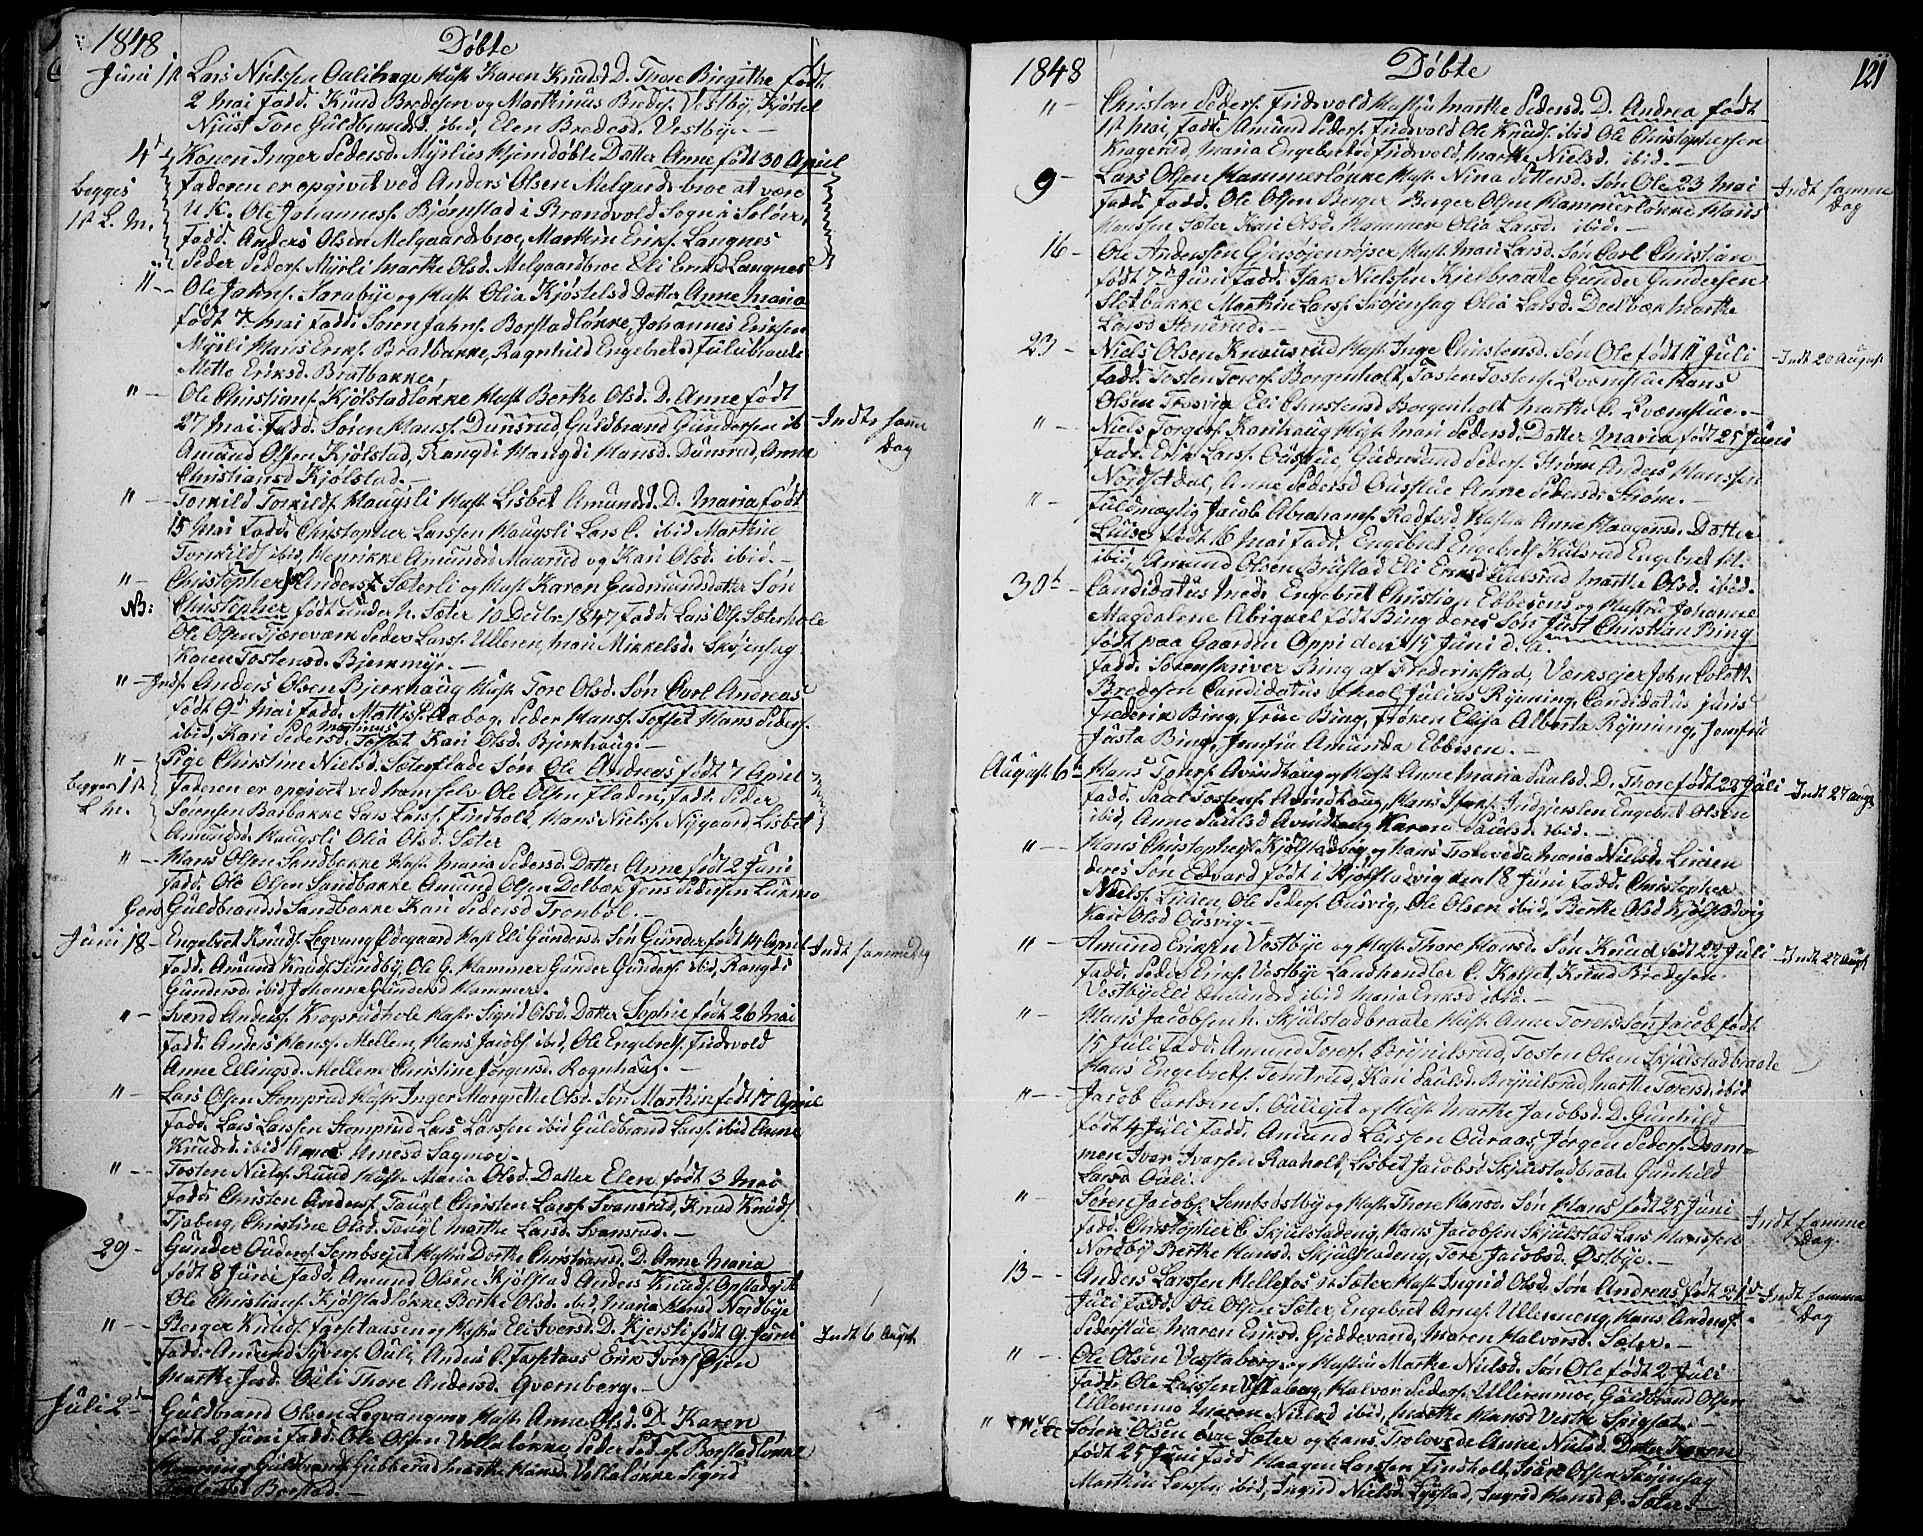 1848 Døbte
Juni 1st Lars Nielssen Aalihage Hust. Karen Knudsd. D. Thore Birgithe født
2 Mai Fadd. Knud Bredesen og Marthinus Bredes. Vestby, Kjøstel
Njust Tore Guldbrandsd. ibid, Elen Bredesd. Vestbye. —
4d Konen Inger Pedersd. Myrlies Hjemdøbte Datter Anne født 30 April
begges Faderen er opgivet ved Anders Olsen Melgardsbroe at være
1st L. M. U. K. Ole Johanness. Bjørnstad i Brandvold Sogn i Soløer,
Fadd. Anders Olsen Melgaardsbroe, Marthin Eriks. Langnes
Peder Peders. Myrli Marthe Olsd. Melgaardbroe Eli Eriksd Langnes
" - Ole Jahns. Sarabye og Hust. Olia Kjøstelsd Datter Anne Maria
født 7 Mai Fadd. Søren Jahns. Borstadløkke, Johannes Eriksen
Myrli Hans Eriks. Bratbakke, Ragnhild Engebretsd Fulubraate
Mette Eriksd. Bratbakke.
" - Ole Christians. Kjølstadløkke Hust. Berthe Olsd. D. Anne født
27 Mai. Fadd. Søren Hans. Dunsrud, Guldbrand Gundersen ib Indt samme
Amund Olsen Kjølstad, Rangdi Hansd. Dunsrud, Anne Dag
Christiansd Kjølstad.
" - Torkild Torkilds. Haugsli Hust. Lisbet Amundsd. D. Maria født
15 Mai Fadd. Christopher Larssen Haugsli Lars C. ibid Marthin
Torkilds ibid, Henrikke Amundsd Maarud og Kari Olsd. ibid. —
" - Christopher Anders. Sæterli og Hust. Karen Gudmundsdatter Søn
NB: Christopher født under N. Sæter 10 Decbr 1847 Fadd. Lars Ols. Sæterhole
Ole Olsen Tjæreværk Peder Larss. Ulleren, Mari Mikkelsd. Skøiensag
Karen Tostensd. Bjerkmyr. —
" - Inds. Anders Olsen Bjerkhaug Hust. Tore Olsd. Søn Carl Andreas
født 9d Mai Fadd. Mattis P. Aabog, Peder Hans. Tofset Hans Peders.
ibid, Kari Pedersd. Martinus Tofset Kari Olsd. Bjerkhaug. —
" - Pige Christine Nielsd. Sæterflade Søn Ole Andreas født 7 April
begges 1st Faderen er opgivet ved ham selv Ole Olsen Fladen, Fadd. Peder
L. M. Sørensen Badbakke Lars Lars. Findholt, Hans Niels. Nygaard Lisbet
Amundsd. Haugsli Olia Olsd. Sæter
" - Hans Olsen Sandbakke Hust. Maria Pedersd. Datter Anne født 2 Juni
Fadd. Ole Olsen Sandbakke Amund Olsen Delbæk Jens Pedersen Lurmo
Guldbrandsd Sandbakke Kari Pedersd Tronbøl. —
Juni 18 - Engebret Knuds. Legvang Ødegaard Hust. Eli Gundersd. Søn Gunder født 14 April Indt samme Dag
Fadd. Amund Knuds. Sundby, Ole G. Hammer Gunder Gunders. ibid, Rangdi
Gundersd. ibid Johanne Gundersd Hammer.
" - Svend Anders. Kogsrudhole Hust. Sigrid Olsd. Datter Sophie født 26 Mai
Fadd. Anders Hans. Mellem, Hans Jacobs. ibid, Ole Engebrets. Fridsvold
Anne Ellingsd. Mellem Christine Jørgensd. Rognhaug. —
" - Lars Olsen Stomprud Hust. Inger Margrethe Olsd. Søn Marthin født 17 April
Fadd. Lars Larssen Stomprud Lars Larssen ibid Guldbrand Lars. ibid Anne
Knudsd. ibid Anne Arnesd Sagmoe.
" - Tosten Niels. Ruud Hust. Maria Olsd. Datter Elen født 3 Mai
Fadd. Christen Anders. Taugl Christen Lars. Svansrud, Knud Knuds.
Tjaberg, Christine Olsd. Taugl Marthe Larsd. Svansrud. —
29 - Gunder Gunders. Sembseiet Hustru Dorthe Christiansd. D. Anne Maria
født 8 Juni Fadd. Amund Olsen Kjølstad Anders Knuds. Opstadeiet
Ole Christians. Kjølstadløkke Berthe Olsd. ibid, Maria Hansd Nordbye
" - Berger Knuds. Farsetaasen og Hustru Eli Iversd. D. Kjersti født 9 Juni Indt 6 Augst.
Fadd. Amund Syvers. Ouli, Anders C. Farsetaas Erik Ivers. Øien
Marthe Jos. Ouli Thore Andersd. Qvernberg. —
Juli 2den Guldbrand Olsen Legvangmo Hust. Anne Olsd. D. Karen
født 2 Juni Fadd. Ole Olsen Vellaløkke, Peder Peders. Borstadløkke
Guldbrand Gubberud Marthe Hansd. Vellaløkke Sigrid
Borstad. —
1848 Døbte 121
" - Christen Peders. Fridsvold Hustru Marthe Pedersd. D. Andrea født
1st Mai, Fadd. Amund Peders. Fridsvold Ole Knuds. ibid Ole Christophersen
Kragerud, Maria Engebretsd Fridsvold, Marthe Nielsd. ibid. —
9 - Lars Olsen Hammerløkke Hust. Nina Pettersd. Søn Ole 23 Mai Indt samme
Fadd. Fadd. Ole Olsen Berger Berger Olsen Hammerløkke Hans Dag
Hanssen Sæter Kari Olsd. Hammer Olia Larsd. ibid. —
16 - Ole Anderssen Gjersøienrøiser Hust. Mari Larsd. Søn Carl Christian
født 7d Juni Fadd. Isak Nielssen Kjelbraate Gunder Gundersen
Slotbakke Marthin Lars. Skøiensag Olia Larsd. Doelbæk Marthe
Larsd Stenerud. —
23 - Niels Olsen Knausrud Hust. Inge Christensd. Søn Ole født 11 Juli Indt 20 August
Fadd. Tosten Torers. Borgenholt, Tosten Tostens. Qvernstue Hans
Olsen Trosvig Eli Christensd Borgenholt Marthe C. Qvernstue. —
" - Niels Torgers. Karihaug Hust. Mari Pedersd. Datter Maria født 25 Juni
Fadd. Erik Larss. Oustue, Gudmund Peders. Strøm Anders Hanssen
Nordsetdal, Anne Pedersd Oustue Anne Pedersd. Strøm. —
" - Fuldmægtig Jacob Abrahams. Radford Hustru Anne Haagensd. Datter
Luise født 16 Mai Fadd. Engebret Engebrets. Kulsrud Engebret H.
ibid, Amund Olsen Brustad Eli Eriksd Kulsrud Marthe Olsd. ibid.
30te - Candidatus Medi. Engebret Christian Ebbesens og Hustru Johanne
Magdalene Abigael født Bing deres Søn Just Christian Bing
født paa Gaarden Oppi den 15 Juni d. A.
Fadd. Sorenskriver Bing af Frederikstad, Værkseier John Colett
Bredesen Candidatus theol. Julius Rynning, Candidatus juris
Frederik Bing, Frue Bing, Frøken Elisa Alberta Rynning, Jomfru
Justa Bing, Jomfru Amunda Ebbesen. —
August 6te Hans Torers. Avindhaug og Hust. Anne Maria Paulsd. D. Thore født 28 Juli Indt 27 Augst
Fadd. Paul Tostens. Avindhaug, Hans Isaks. Indgjerslen Engebret Olsen
ibid, Anne Paulsd Avindhaug Karen Paulsd. ibid. —
" - Hans Christophers. Kjølstadvig og Hans Trolovede Maria Nielsd. Lieien
deres Søn Edvard født i Kjølstadvig den 18 Juni Fadd. Christopher
Niels. Lieien, Ole Peders. Ousvig, Ole Olsen ibid, Berthe Olsd Kjølstadvig
Kari Olsd Ousvig. —
" - Amund Eriksen Vestbye og Hust. Thore Hansd. Søn Knud født 22 Juli Indt 27 Augst
Fadd. Peder Eriks. Vestbye Landhandler C. Kolset, Knud Bredesen
Vestbye Eli Amundsd ibid Maria Eriksd ibid. —
" - Hans Jacobsen N. Skjulstadbraate Hust. Anne Torersd Søn Jacob født
15 Juli Fadd. Amund Torers. Brynilsrud, Tosten Olsen Skjulstadbraate
Hans Engebrets. Temtrud, Kari Paulsd. Brynilsrud, Marthe Torersd. ibid
" - Jacob Carlsen S. Oulieiet og Hust. Marthe Jacobsd. D. Gunhild
født 4 Juli Fadd. Amund Larssen Ouraas, Jørgen Peders. Dram-
men Iver Iversen Raaholt, Lisbet Jacobsd Skjulstadbraate Gunhild
Larsd Ouli.
" - Søren Jacobs. Sembsøstby og Hust. Thore Hansd. Søn Hans født 25 Juni Indt samme
Fadd. Christopher C. Skjulstadeng, Hans Jacobsen Skjulstad Lars Hanssen Dag.
Nordby Berthe Hansd. Skjulstadeng, Tore Jacobsd. Østbye. —
13 - Anders Larssen Hellefos N. Sæter Hust. Ingrid Olsd. Søn Andreas født 21d Indt samme
Juli Fadd. Ole Olsen Sæter, Engebret Arnes. Ullerneng, Hans Anders. Dag
Pederstue, Maren Eriksd. Gjeddevand, Maren Halvorsd. Sæter. —
" - Ole Olsen Vestaberg og Hustru Marthe Nielsd. Søn Ole født 2 Juli
Fadd. Ole Larssen Vestaberg, Halvor Peders. Ullerenmoe, Guldbrand Olsen
Ullerenmo Maren Nielsd ibid, Marthe Hansd Vestre Spigset. —
" - Søren Olsen øvre Sæter og hans Trolovede Anne Nielsd. Datter Karen
født 25 Juni Fadd Haagen Larssen Findholt, Iver Olsen Skøiensag
Marthin Larssen ibid, Ingrid Nielsd. Lystad, Ingrid Hansd Ø. Sæter. —